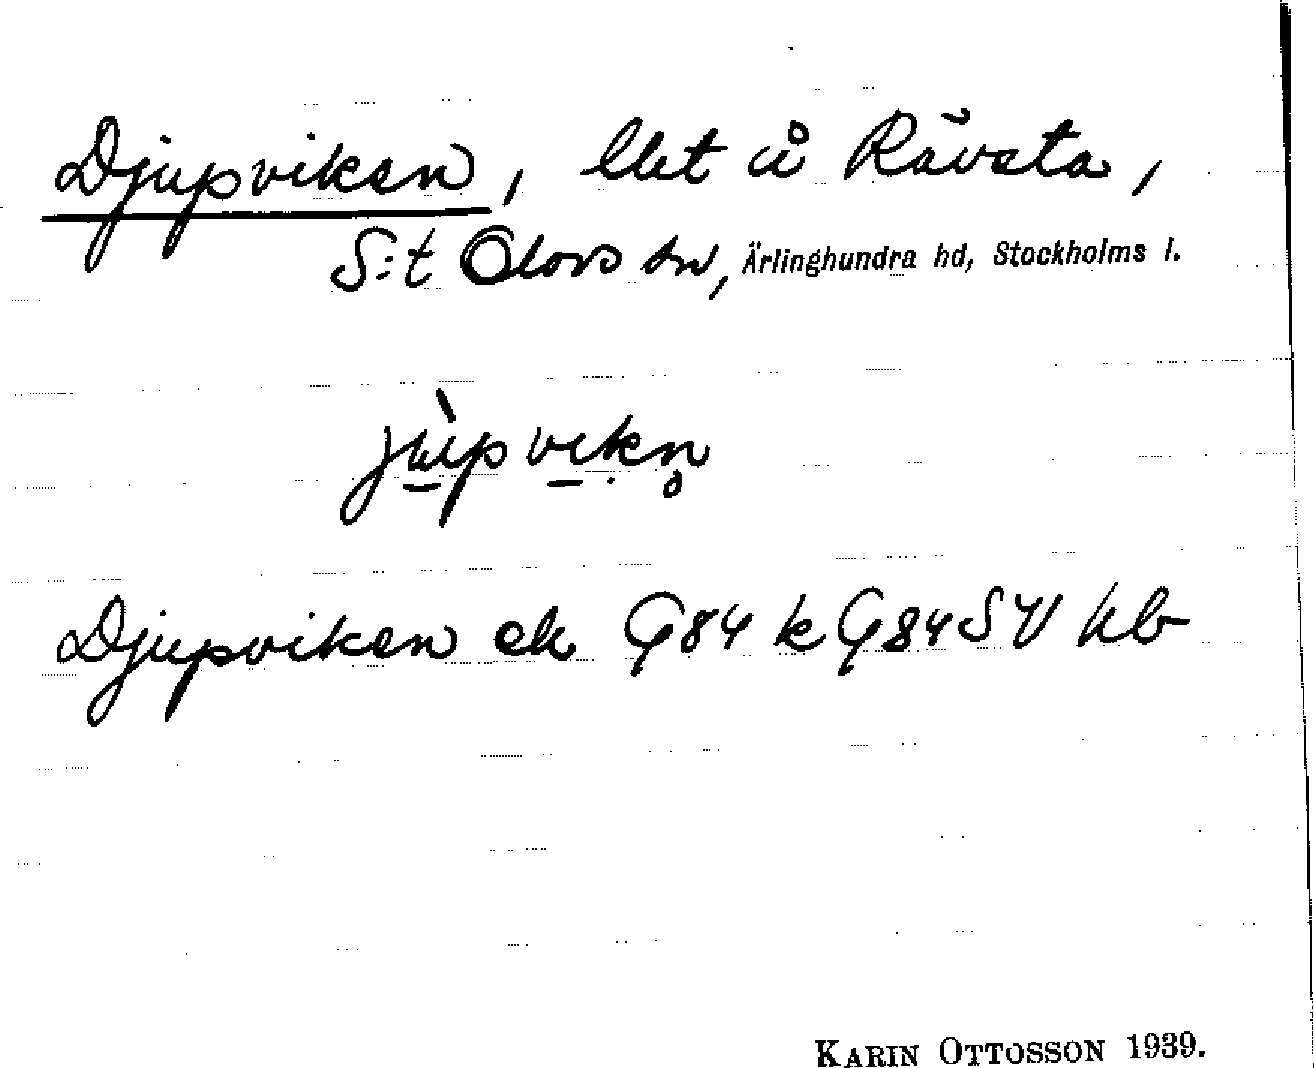 Djupviken, lht å Rävsta,
S:t Olovs sn, Ärlinghundra hd, Stockholms l.
jùpvikn̥
Djupviken ek G84 k G84SV hb
KARIN OTTOSSON 1939.